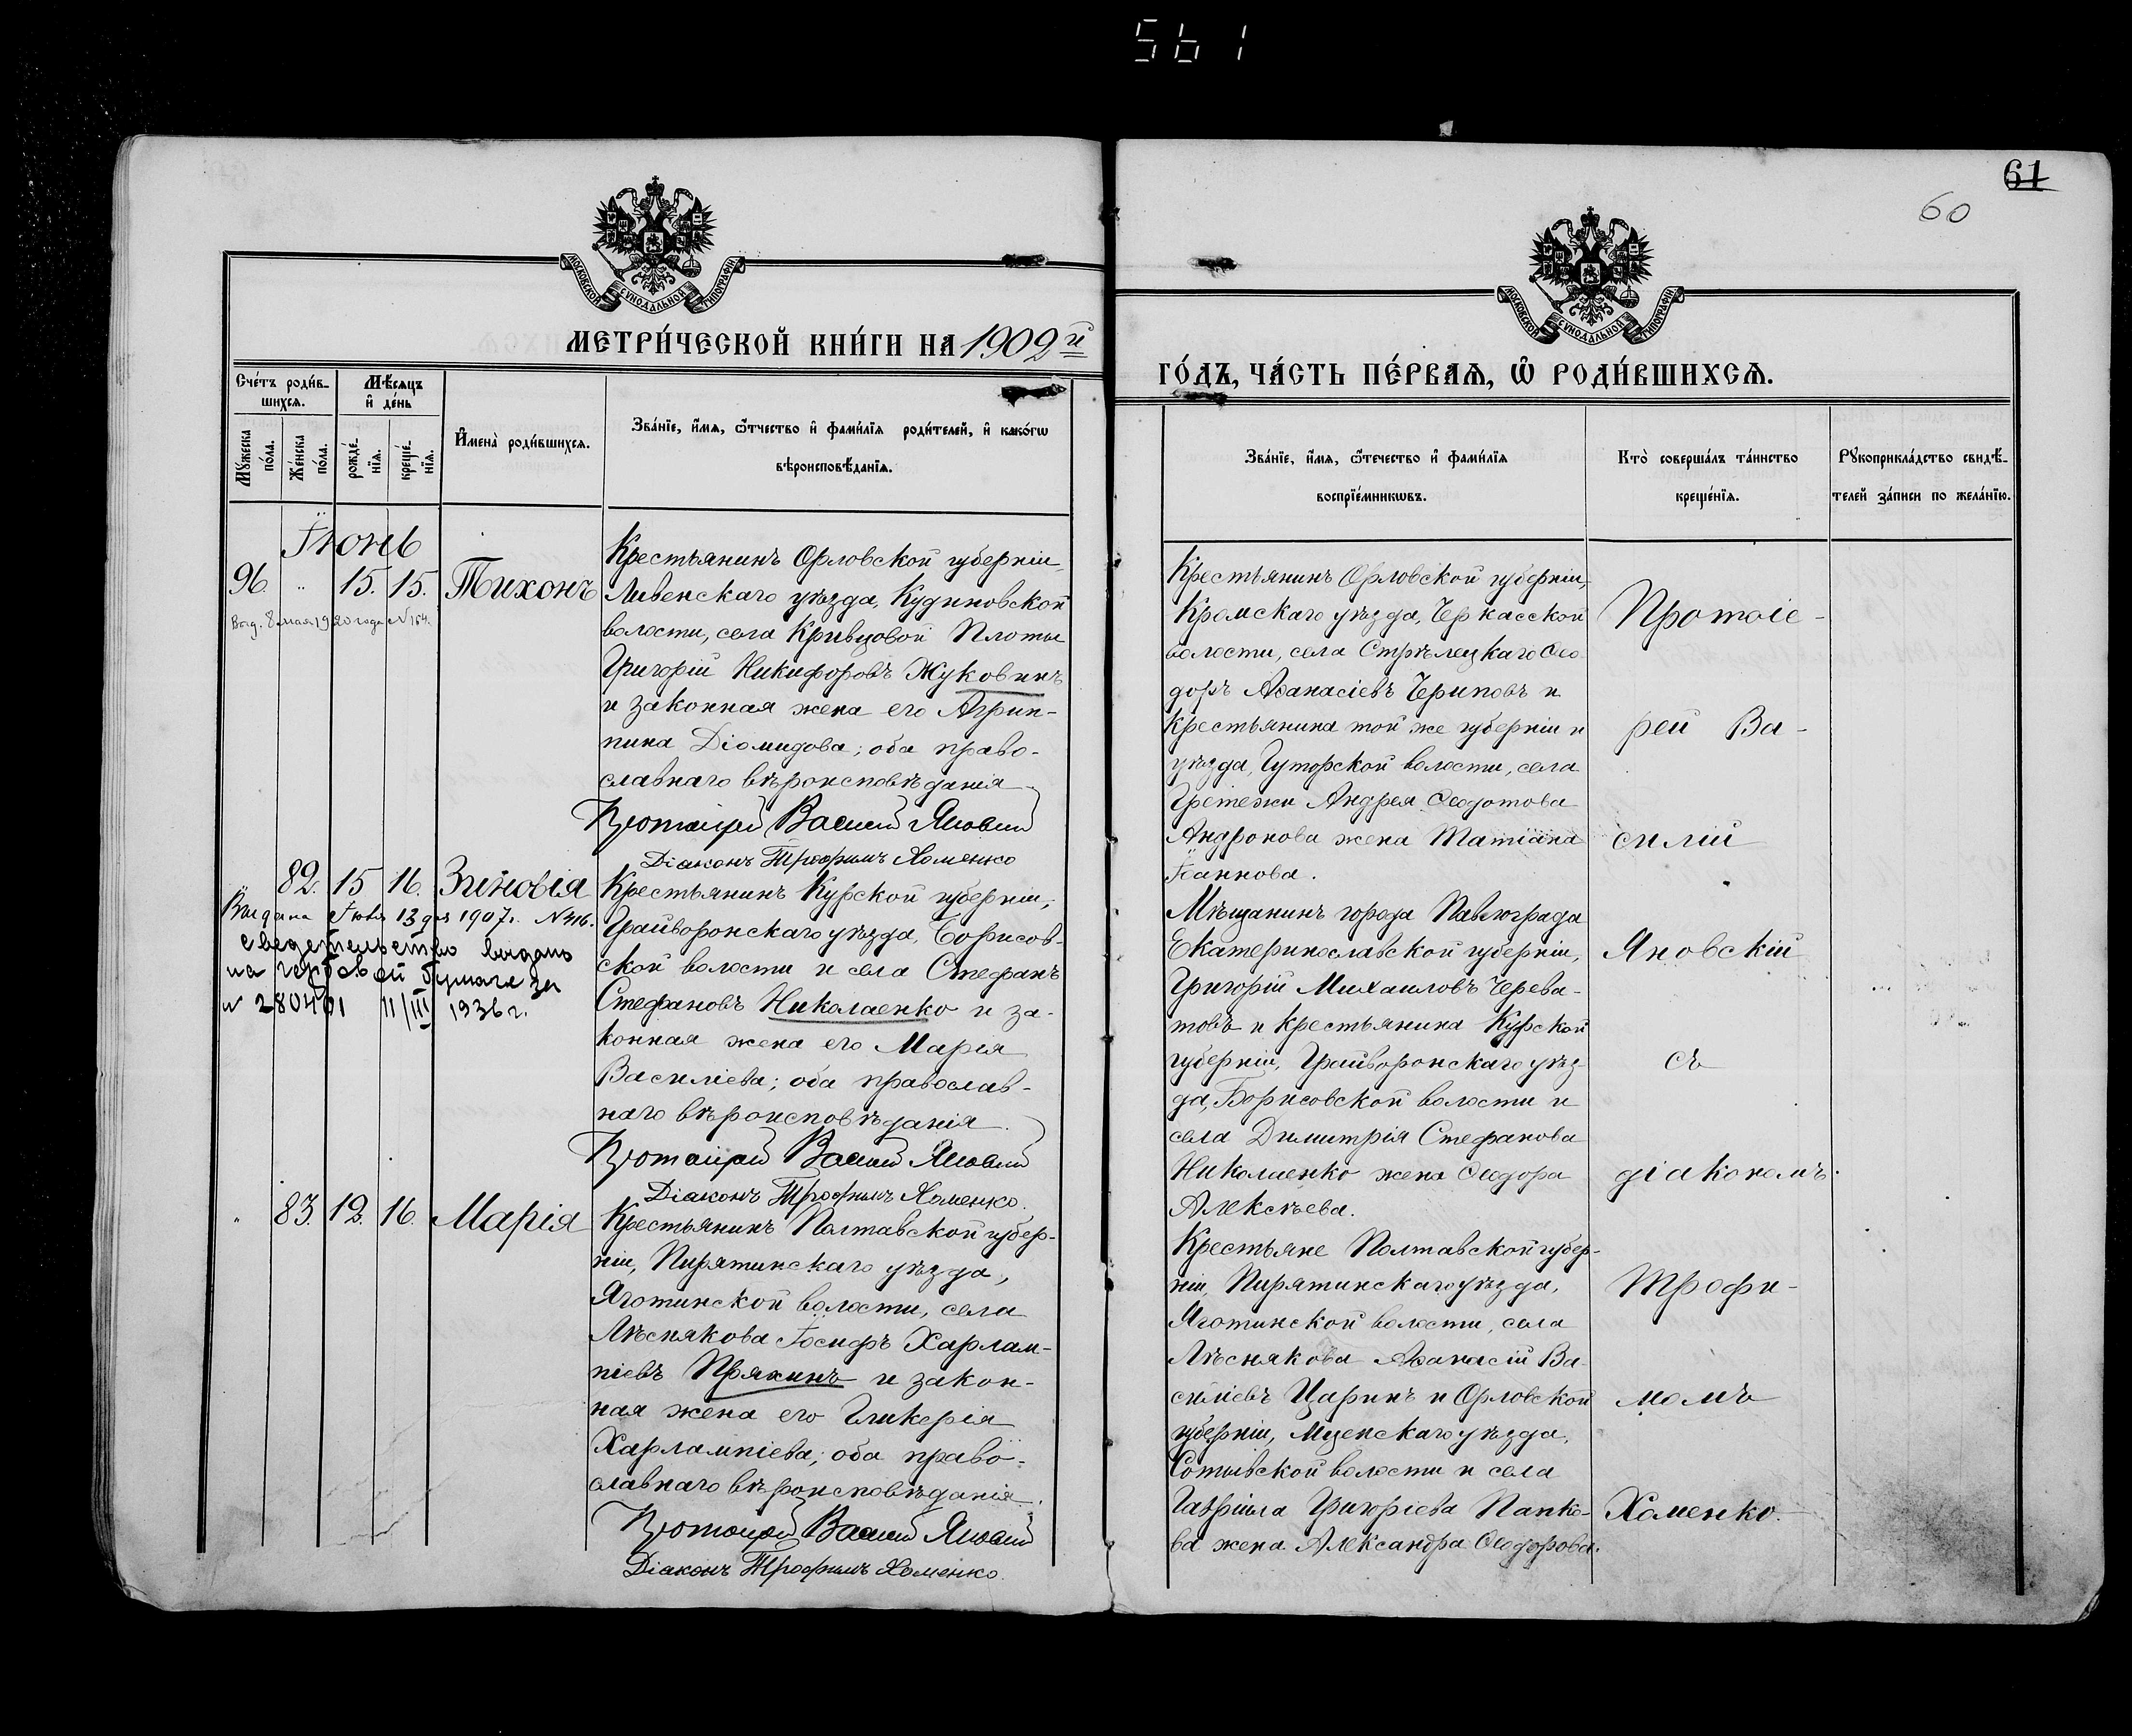 561
61
60
МОСКОВСКОЙ СѴНОДАЛЬНОЙ ТИПОГРАФІИ
МОСКОВСКОЙ СѴНОДАЛЬНОЙ ТИПОГРАФІИ
МЕТРИ́ЧЕСКОЙ КНИ́ГИ НА 1902й
ГО́ДЪ, ЧА́СТЬ ПЕ́РВАѦ, Ѡ РОДИ́ВШИХСѦ.
Сче́тъ роди́в-
шихсѧ.
Мѣ́сѧцъ
и҆ де́нь
Мꙋжеска по́ла.
Же́нска по́ла.
рожде́-
нїѧ.
креще́-
нїѧ.
И҆мена̀ роди́вшихсѧ.
Зва́нїе, и҆́мѧ, ѻ҆́тчество и҆ фами́лїѧ роди́телей, и҆ како́гѡ
вѣроисповѣ́данїѧ.
Зва́нїе, и҆́мѧ, ѻ҆́течество и҆ фами́лїѧ
воспрїе́мникѡвъ.
Кто̀ соверша́лъ та́инство
креще́нїѧ.
Рꙋкоприкла́дство свидѣ́-
телей за́писи по жела́нїю.
Іюнь
96. " 15. 15. Тихонъ
Выд. 8 мая 1920 года № 164.
Крестьянинъ Орловской губерніи,
Ливенскаго уѣзда, Кудиновской
волости, села Кривцовой Плоты
Григорій Никифоровъ Жуковинъ
и законная жена его Агрип-
пина Діомидова; оба право-
славнаго вѣроисповѣданія.
Протоіерей Василій Яновскій
Діаконъ Трофимъ Хоменко
Крестьянинъ Орловской губерніи,
Кромскаго уѣзда, Черкасской
волости, села Стрѣлецкаго Ѳео-
доръ Аѳанасіевъ Чериповъ и
крестьянина той же губерніи и
уѣзда, Гуторской волости, села
Гретежи Андрея Ѳеодотова
Андронова жена Татіана
Іоаннова.
82. 15 16. Зиновія
Выдана Іюня 13 дня 1907г. № 416.
Сведетельство выдано
на гербовой бумаге за
№ 280401 11/III 1936 г.
Крестьянинъ Курской губерніи,
Грайворонскаго уѣзда, Борисов-
ской волости и села Стефанъ
Стефановъ Николаенко и за-
конная жена его Марія
Василіева; оба православ-
наго вѣроисповѣданія.
Протоіерей Василій Яновскій
Діаконъ Трофимъ Хоменко.
Мѣщанинъ города Павлограда
Екатеринославской губерніи,
Григорій Михаиловъ Черева-
товъ и крестьянина Курской
губерніи, Грайворонскаго уѣз-
да, Борисовской волости и
села Димитрія Стефанова
Николаенко жена Ѳеодора
Алексѣева.
" 83. 12. 16. Марія
Крестьянинъ Полтавской губер-
ніи, Пирятинскаго уѣзда,
Яготинской волости, села
Лѣснякова Іосифъ Харлам-
піевъ Пряхинъ и закон-
ная жена его Гликерія
Харлампіева; оба право-
славнаго вѣроисповѣданія.
Протоіерей Василій Яновскій
Діаконъ Трофимъ Хоменко.
Крестьяне Полтавской губер-
ніи, Пирятинскаго уѣзда,
Яготинской волости, села
Лѣснякова Аѳанасій Ва-
силіевъ Царинъ и Орловской
губерніи, Мценскаго уѣзда,
Сотывской волости и села
Гавріила Григоріева Папко-
ва жена Александра Ѳеодорова.
Протоіе-
рей Ва-
силій
Яновскій
съ
діакономъ
Трофи-
момъ
Хоменко.